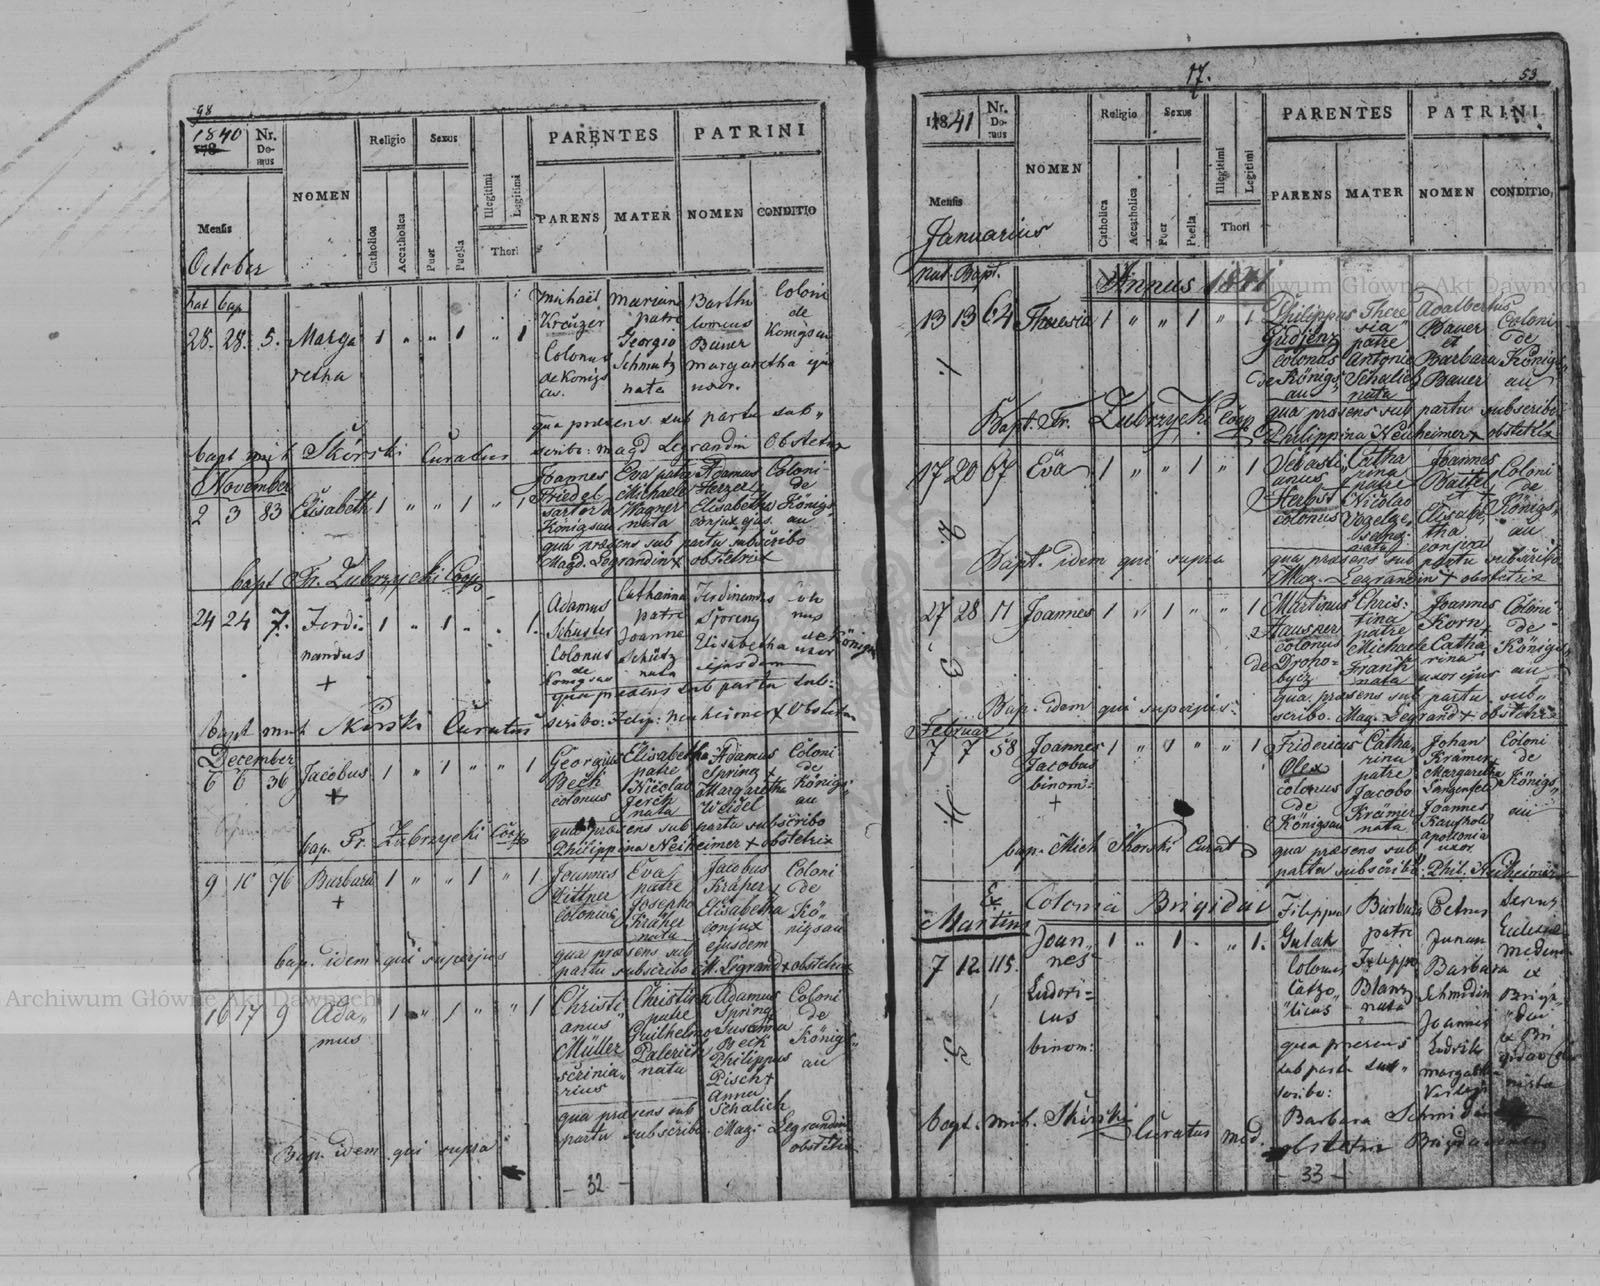 98
1840
Nr. Domus
NOMEN
Religio
Sexus
PARENTES
PATRINI
Catholica
Accatholica
Puer
Puella
Illegitimi
Legitimi
Thori
PARENS
MATER
NOMEN
CONDITIO
Mensis
October
nat bap
28. 28. 5. Marga 1 " " 1 " 1
retha
Michaël Kreuzer Colonus de Königs au.
Mariana patre Georgio Schmutz nata
Bartholomeus Bauer margaretha uxor.
Coloni de Königsau
qua praesens sub partu sub"
scribo: magd Legrandin Obstetrix
bapt mich Skórski Curatus
November
2 3 83 Elisabeth 1 " " 1 " 1
Joannes Friedel sartor Königsau
Eva patre Michaele Wagner nata
Adamus Herzel Elisabetha conjux ejus.
Coloni de Königs au
qua praesens sub partu subscribo
Magd. Legrandin + obstetrix
bapt Fr. Zubrzycki Coop
24 24 7. Ferdi- 1 " 1 " . 1.
nandus
+
Adamus Schuster Colonus de Königsau
Catharina patre Joanne Schütz nata
Ferdinandus Elisabetha uxor ejusdem
de Königsau
qua praesens sub partu sub=
scribo: Felip: Neuheimer + Obstetrix
bapt mich Skórski Curatus
December
6 6 36 Jacobus 1 " 1 " " 1
+
Georgius Beck colonus
Elisabetha patre Nicolao Jerck nata
Adamus Spring + Margaretha Weidel
Coloni de Königs" au
qua praesens sub partu subscribo
Philippina Neiheimer + obstetrix
bap. Fr. Zubrzycki Coop
9 10 76 Barbara 1 " " 1 " 1
+
Joannes Littner colonus
Eva patre Josepho Kräher nata
Jacobus Kräher + Elisabetha conjux ejusdem
Coloni de Kö" nigsau
qua praesens sub
partu subscribo M. Legrand + obstetrix
bap. idem qui superjus
16 17 9 Ada" 1 " 1 " " 1
mus
Christi" anus Müller scrinia" rius
Christina patre Guilhelmo nata
Adamus Spring + Susanna Beck Philippus Pisch + Anna Schalick
Coloni de Königs" au
qua praesens sub
partu subscribo. Mag. Legrandin obstetrix
Bap. idem qui supra
- 32 -
17.
53
1841
Nr. Domus
NOMEN
Religio
Sexus
PARENTES
PATRINI
Catholica
Accatholica
Puer
Puella
Illegitimi
Legitimi
Thori
PARENS
MATER
NOMEN
CONDITIO
Mensis
Januarius
nat. Bapt.
Annus 1841
13 13 64 Theresia 1 " " 1 " 1
Philippus colonus de Königs" au
There sia patre Antonio Schalick nata
Adalbertus Bauer et Barbara Bauer
Coloni de Königs" au
qua praesens sub partu subscribo
Philippina Neuheimer + obstetrix
1.
Bapt. Fr. Zubrzycki Coop
17 20 67 Eva 1 " " 1 " 1
Sebasti" anus Herbst colonus
Catha rina patre Nicolao nata
Joannes Bartel Elisabe" tha conjux
Coloni de Königs" au
qua praesens sub partu subscribo
Mag. Legrandin + obstetrix
2.
Bapt. idem qui supra
27 28 11 Joannes 1 " 1 " " 1
Martinus Hausner colonus de Droho= bycz
Chris: tina patre Michaele Frank nata
Joannes Korn + Catha rina uxor ejus
Coloni de Königs" au
qua praesens sub partu sub"
scribo. Mag. Legrand + obstetrix
3.
Bap. idem qui superjus
Februar
7 7 58 Joannes 1 " 1 " " 1
Jacobus
binom:
+
Fridericus Olex colonus de Königsau
Catha rina patre Jacobo Krämer nata
Johan Krämer Margaretha Langenfeld Joannes apollonia uxor
Coloni de Königs" au
qua praesens sub
partu subscribo. Phil. Neuheimer
4.
bap. Mich Skorski Curat
Ex Colonia Brigidau
Martius
7 12. 115. Joan" 1 " 1. " " 1.
nes
Ludovi=
cus
binom:
Filippus Gulak Colonus
Barbara patre Filippo Blanz nata
Petrus Junan Barbara Schmidin Joannes Ludvik margaretha
Ecclesiae ex Briga" dau ex Bri gidau
qua praesens
sub partu sub"
scribo:
Barbara Schmidin
obstetrix Brigidauensis
5.
bapt. mich. Skórski Curatus
33 -
Archiwum Główne Akt Dawnych
Archiwum Główne Akt Dawnych